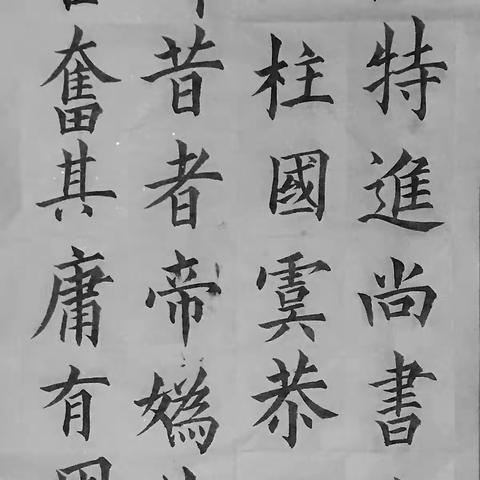 特進尚書
柱國虞恭
昔者帝媯
奮其庸有